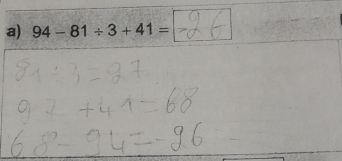 a) 94 − 81 ÷ 3 + 41 = -26
81 ÷ 3 = 27
27 + 41 = 68
68 - 94 = -26